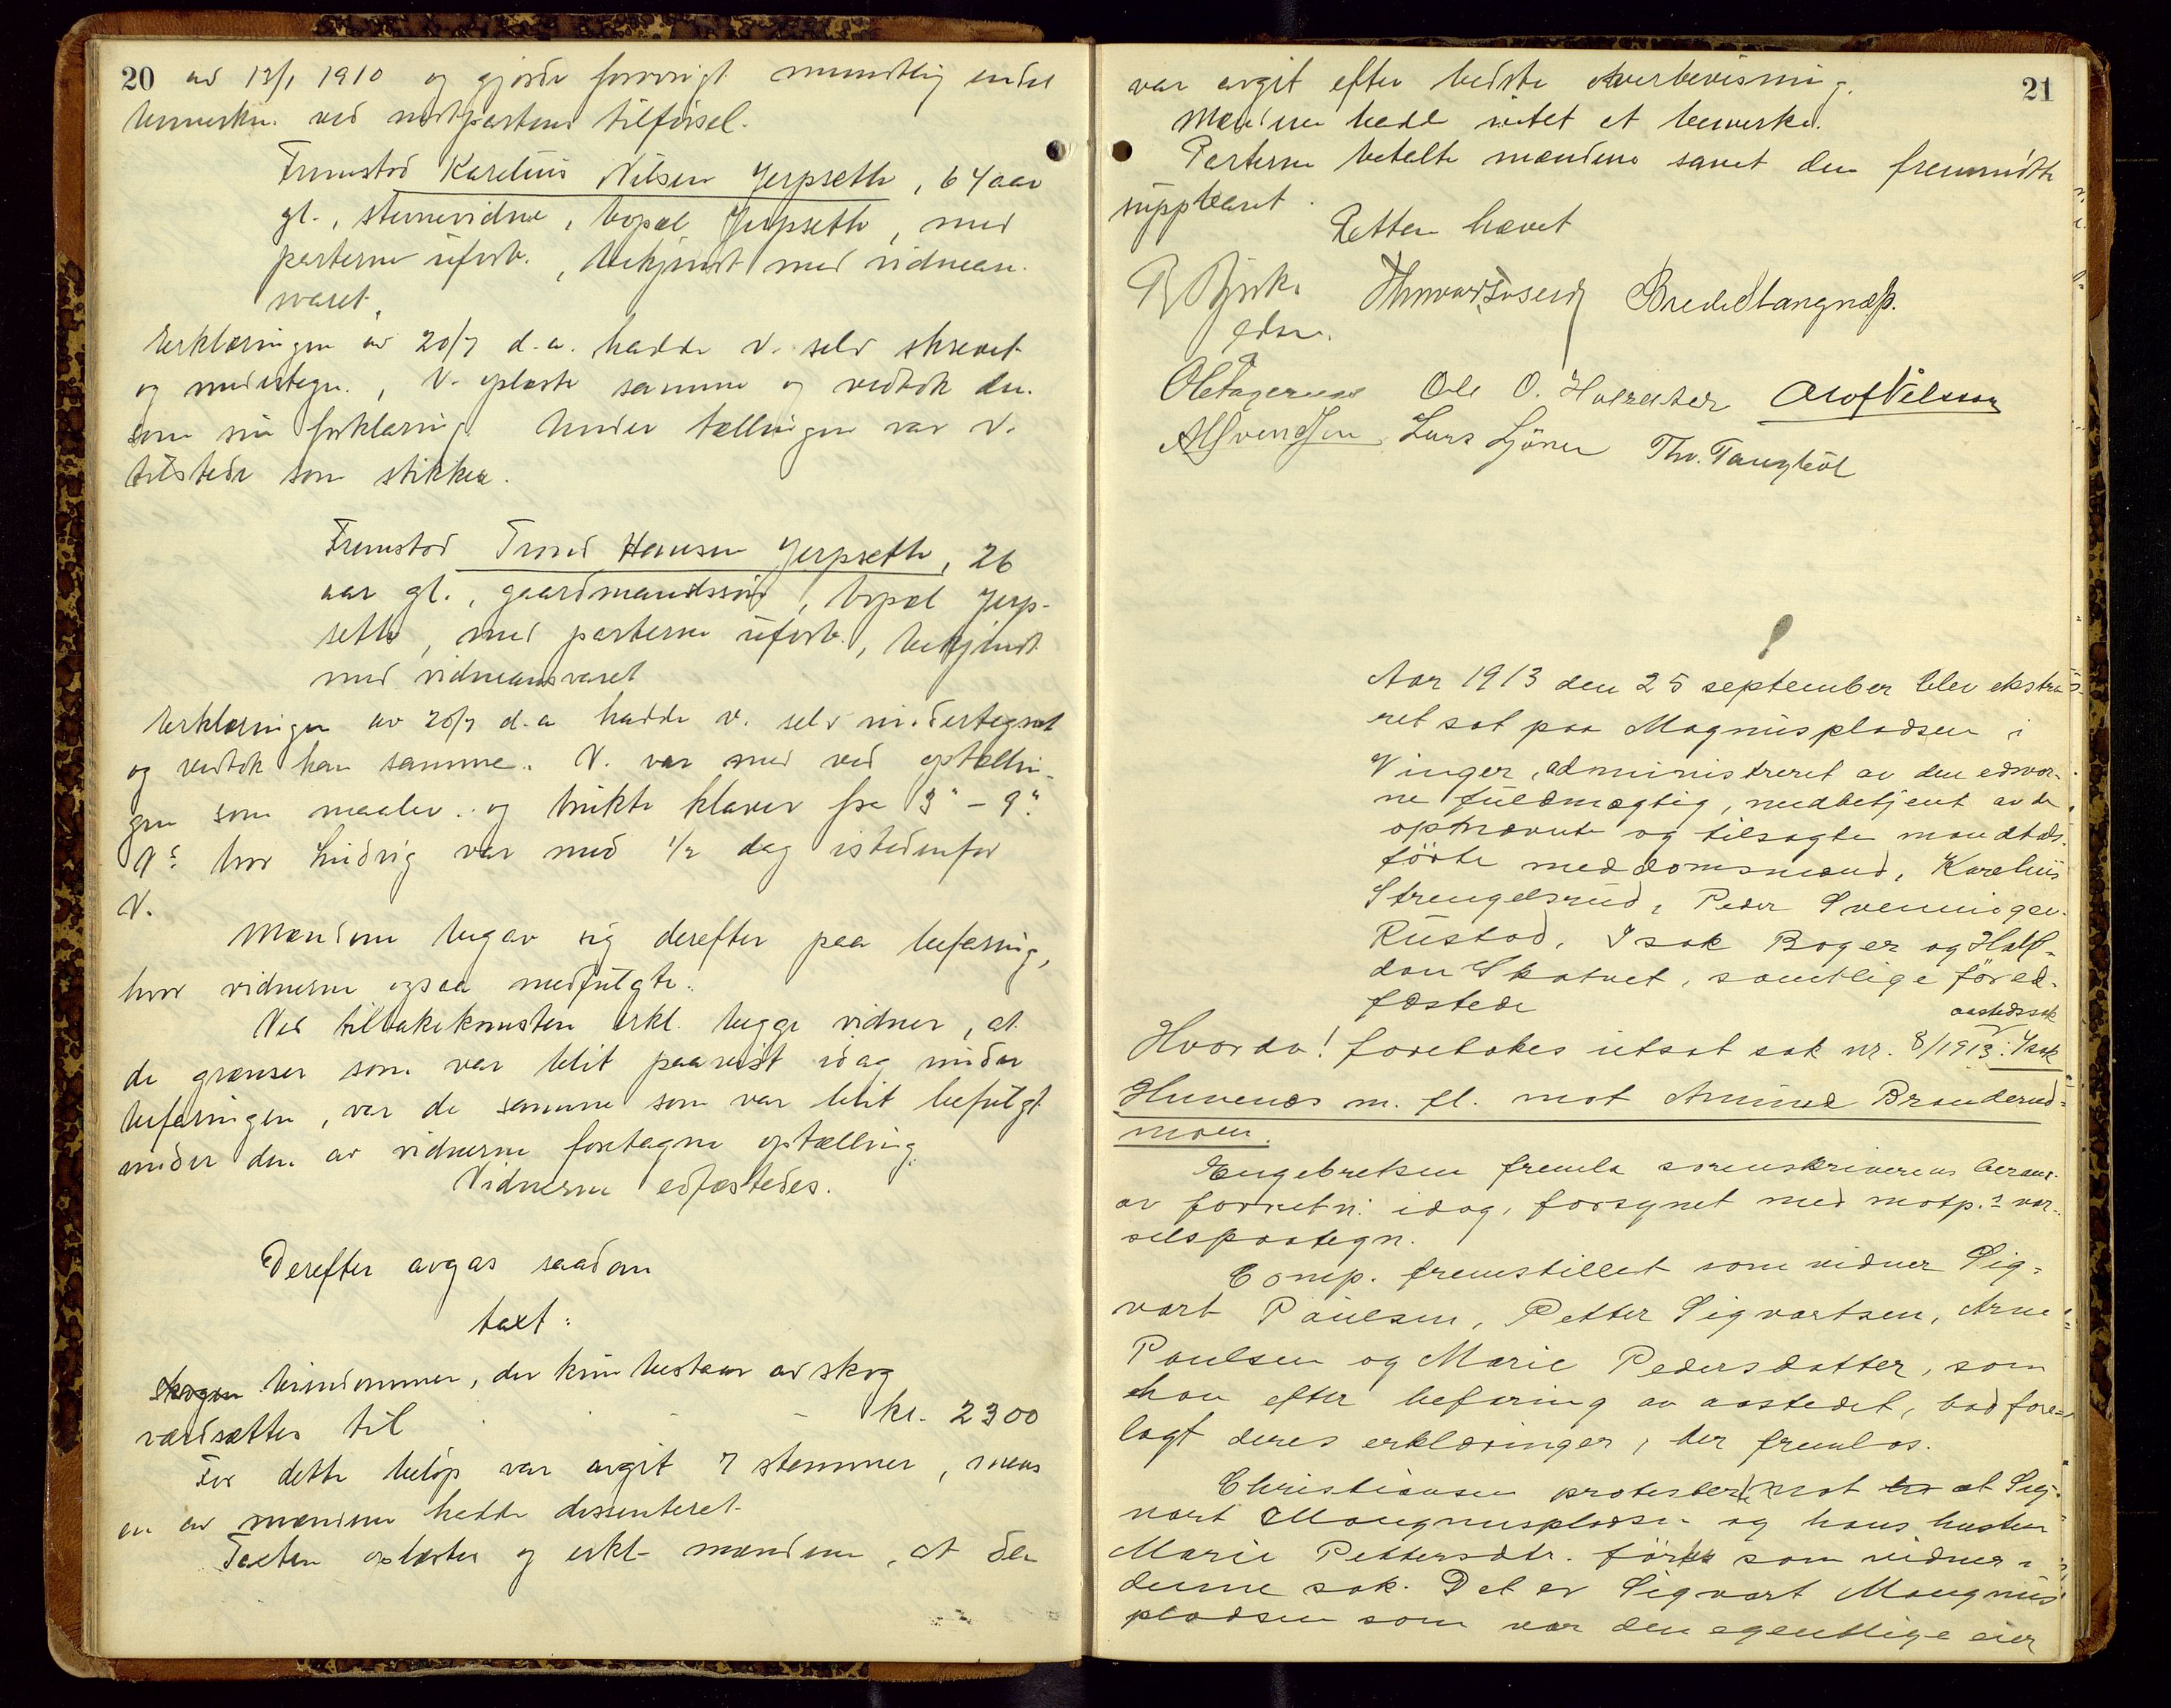 20 av 13/1 1910 og gjorde forøvrigt mundtlig endel
bemerkn. ved motpartens tilførsel.
Fremstod Karelius Nilsen Jerpseth, 64 aar
gl., stevnevidne, bopæl Jerpseth, med
parterne ubesl., bekjendt med vidnean-
svaret.
Erklæringen av 20/7 d.a. hadde v. selv skrevet
og undertegn., v. oplæste samme og vedtok den
som sin forklaring. Under tællingen var v.
tilstede som stikker.
Fremstod Trond Hansen Jerpseth, 26
aar gl., gaardmandssøn, bopæl Jerp-
seth, med parterne ubesl., bekjendt
med vidneansvaret
Erklæringen av 20/7 d.a hadde v. selv undertegnet
og vedtok han samme. V. var med ved optællin-
gen som maaler og brukte klaver fra 3" – 9".
V.s bror Ludvig var med 1/2 dag istedenfor
V.
Mændene begav sig derefter paa befaring,
hvor vidnerne ogsaa medfulgte.
Ved tilbakekomsten erkl. begge vidner, at
de grænser som var blit paavist idag under
befaringen, var de samme som var blit befulgt
under den av vidnerne foretagne optælling.
Vidnerne edfæstedes.
Derefter avgas saadan
taxt:
Skogen Eiendommen, der kun bestaar av skog
værdsættes til – – kr. 2300
For dette beløp var avgit 7 stemmer, mens
en av mændene hadde dissenteret
Taxten oplæstes og erkl. mændene, at den
21
var avgit efter bedste overbevisning.
Mændene hadde intet at bemerke.
Parterne betalte mændene samt den fremmødte
suppleant.
Retten hævet
edsv.
Ole O. Holsæter Olof Nilsson
Lars Sjöner Th. Tangbøl
Aar 1913 den 25 september blev ekstra
ret sat paa Magnuspladsen i
Vinger, administreret av den edsvor-
ne fuldmægtig, medbetjent av de
opnævnte og tilsagte mandtals-
førte meddomsmænd, Karelius
Strengelsrud, Peder Svenningsen
Rustad, Isak Boger og Half-
dan Skatvet, samtlige før ed-
fæstede
aastedssak
Hvorda! foretokes utsat sak nr. 8/1913: Isak
Huvenes m. fl. mot Amund Branderud-
moen.
Engebretsen fremla sorenskriverens beram.
av forretn. idag, forsynet med motp.s var-
selspaategn.
Comp. fremstillet som vidner Sig-
vart Paulsen, Petter Sigvartsen, Arne
Paulsen og Marie Pedersdatter, som
han efter befaring av aastedet, bad fore-
lagt deres erklæringer, der fremlas.
Christiansen protesterte mot at Sig-
vart Mangnuspladsen og hans hustru
Marie Pettersdtr. føres som vidner i
denne sak. Det er Sigvart Mangnus
pladsen som var den egentlige eier